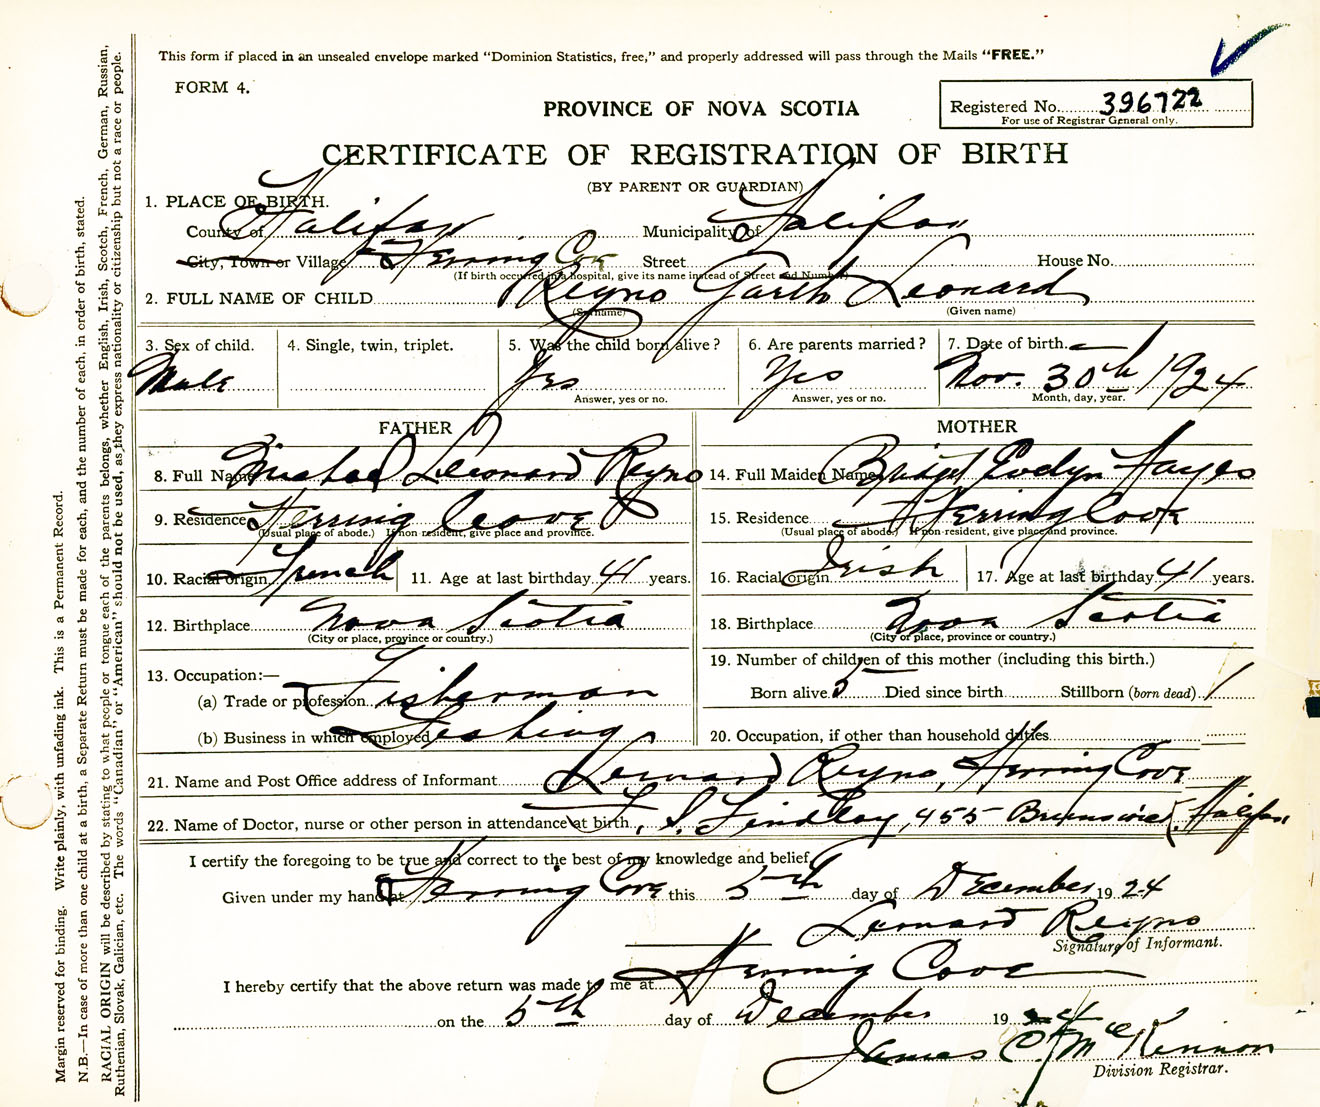 This form if placed in an unsealed envelope marked "Dominion Statistics, free," and properly addressed will pass through the Mails "FREE."
FORM 4.
PROVINCE OF NOVA SCOTIA
Registered No. 396722
For use of Registrar General only.
CERTIFICATE OF REGISTRATION OF BIRTH
(BY PARENT OR GUARDIAN)
1. PLACE OF BIRTH.
County of Halifax Municipality of Halifax
City, Town or Village Herring Cove Street House No.
(If birth occurred in a hospital, give its name instead of Street and Number)
2. FULL NAME OF CHILD Reyno Garth Leonard
(Surname) (Given name)
3. Sex of child. 4. Single, twin, triplet. 5. Was the child born alive? 6. Are parents married? 7. Date of birth.
Male Yes Yes Nov. 30th 1924
Answer, yes or no. Answer, yes or no. Month, day, year.
FATHER MOTHER
8. Full Name Michael Leonard Reyno 14. Full Maiden Name Bridget Evelyn Hayes
9. Residence Herring Cove 15. Residence Herring Cove
(Usual place of abode.) If non-resident, give place and province. (Usual place of abode.) If non-resident, give place and province.
10. Racial origin French 11. Age at last birthday 41 years. 16. Racial origin Irish 17. Age at last birthday 41 years.
12. Birthplace Nova Scotia 18. Birthplace Nova Scotia
(City or place, province or country.) (City or place, province or country.)
13. Occupation:— 19. Number of children of this mother (including this birth.)
(a) Trade or profession Fisherman Born alive 5 Died since birth Stillborn (born dead) 1
(b) Business in which employed Fishing 20. Occupation, if other than household duties
21. Name and Post Office address of Informant Leonard Reyno, Herring Cove
22. Name of Doctor, nurse or other person in attendance at birth F. S. Findlay, 455 Brunswick St. Halifax
I certify the foregoing to be true and correct to the best of my knowledge and belief.
Given under my hand at Herring Cove this 5th day of December 1924
Leonard Reyno
Signature of Informant.
I hereby certify that the above return was made to me at Herring Cove
on the 5th day of December 1924
James C. McKinnon
Division Registrar.
Margin reserved for binding. Write plainly, with unfading ink. This is a Permanent Record.
N.B.—In case of more than one child at a birth, a Separate Return must be made for each, and the number of each, in order of birth, stated.
RACIAL ORIGIN will be described by stating to what people or tongue each of the parents belongs, whether English, Irish, Scotch, French, German, Russian,
Ruthenian, Slovak, Galician, etc. The words "Canadian" or "American" should not be used, as they express nationality or citizenship but not a race or people.